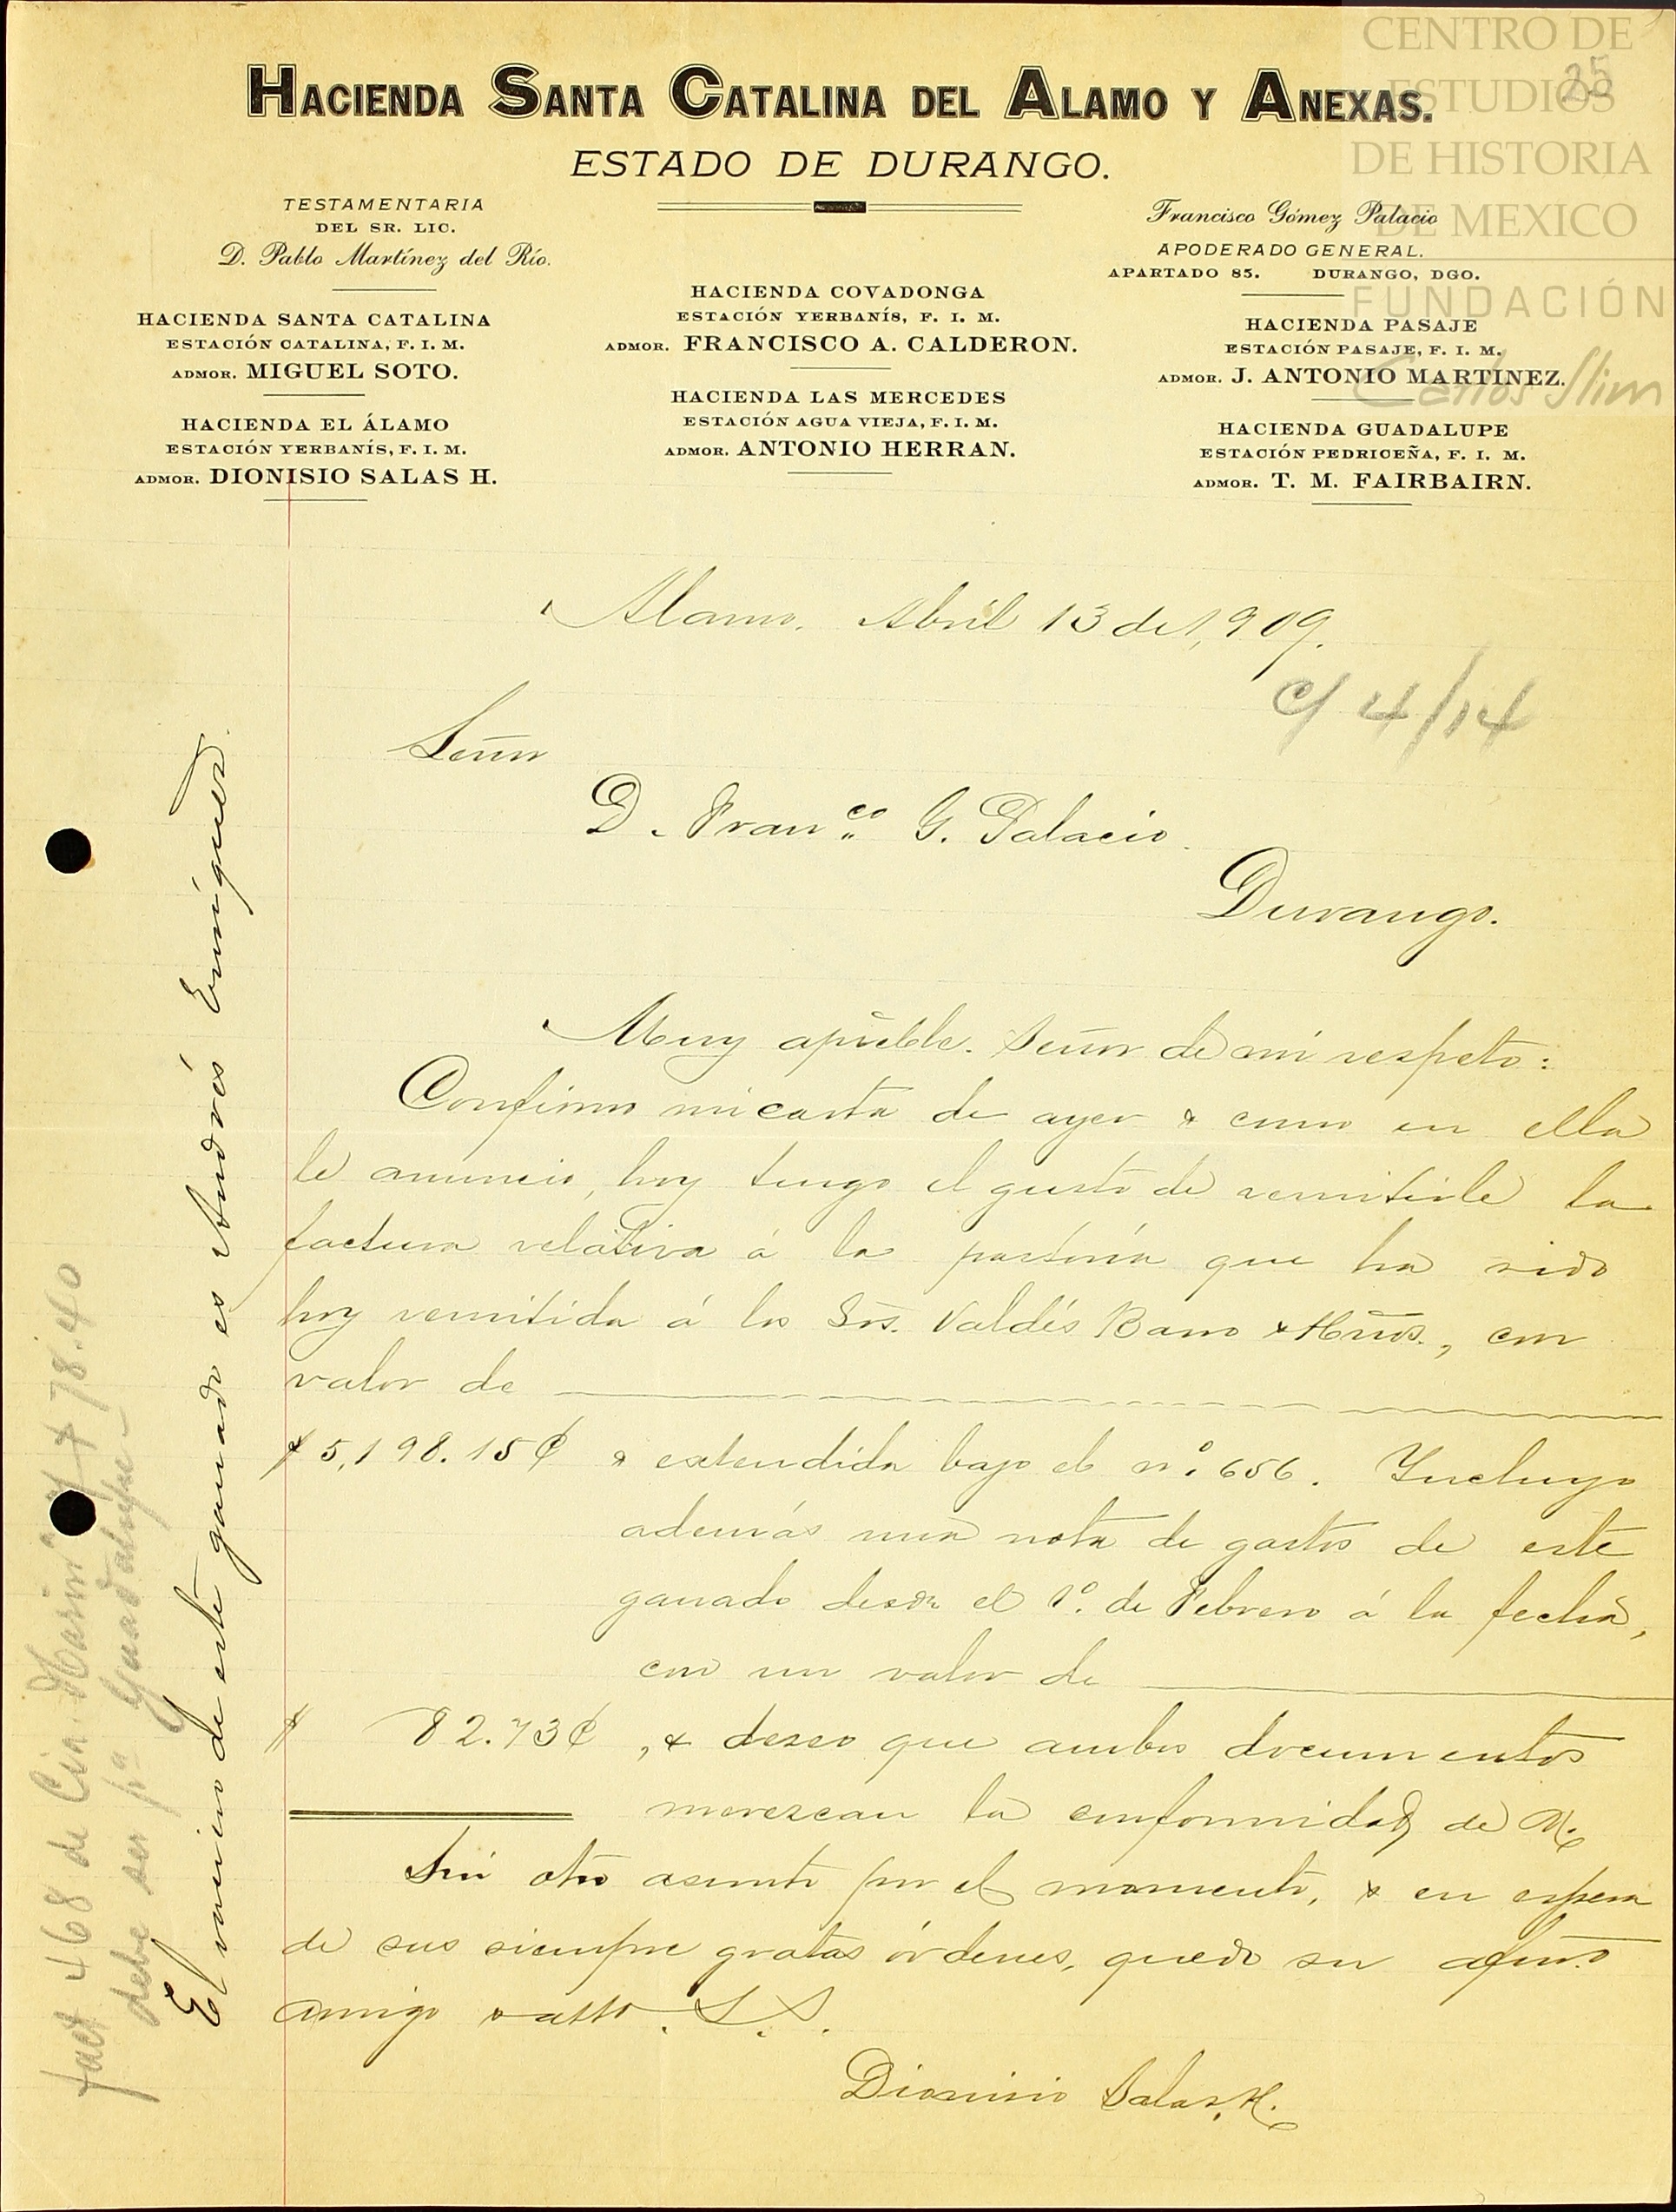 CENTRO DE
ESTUDIOS
DE HISTORIA
DE MEXICO
FUNDACIÓN
Carlos Slim
25
HACIENDA SANTA CATALINA DEL ALAMO Y ANEXAS.
ESTADO DE DURANGO.
TESTAMENTARIA
DEL SR. LIC.
D. Pablo Martínez del Río.
HACIENDA SANTA CATALINA
ESTACIÓN CATALINA, F. I. M.
ADMOR. MIGUEL SOTO.
HACIENDA EL ÁLAMO
ESTACIÓN YERBANÍS, F. I. M.
ADMOR. DIONISIO SALAS H.
HACIENDA COVADONGA
ESTACIÓN YERBANÍS, F. I. M.
ADMOR. FRANCISCO A. CALDERON.
HACIENDA LAS MERCEDES
ESTACIÓN AGUA VIEJA, F. I. M.
ADMOR. ANTONIO HERRAN.
Francisco Gómez Palacio
APODERADO GENERAL.
APARTADO 85. DURANGO, DGO.
HACIENDA PASAJE
ESTACIÓN PASAJE, F. I. M.
ADMOR. J. ANTONIO MARTINEZ.
HACIENDA GUADALUPE
ESTACIÓN PEDRICEÑA, F. I. M.
ADMOR. T. M. FAIRBAIRN.
Alamo. Abril 13 de 1,909.
c/ 4/14
Señor
D. Fran.co G. Palacio.
Durango.
Muy apreble. Señor de mi respeto:
Confirmo mi carta de ayer & como en ella
le anuncio, hoy tengo el gusto de remitirle la
factura relativa á la partida que ha sido
hoy remitida á los Srs. Valdés Bano & Hños., con
valor de
$5,198.15¢ & extendida bajo el n.º 656. Incluyo
además una nota de gastos de este
ganado desde el 1º. de Febrero á la fecha,
con un valor de
$ 82.73¢, & deseo que ambos documentos
merezcan la conformidad de V.
Sin otro asunto por el momento, & en espera
de sus siempre gratas órdenes, quedo su afmo.
amigo & atto. S. S.
Dionisio Salas H.
El vaciero de este ganado es Andrés Enríquez.
fact 468 de Cia. 78.40
debe ser pa Guadalupe